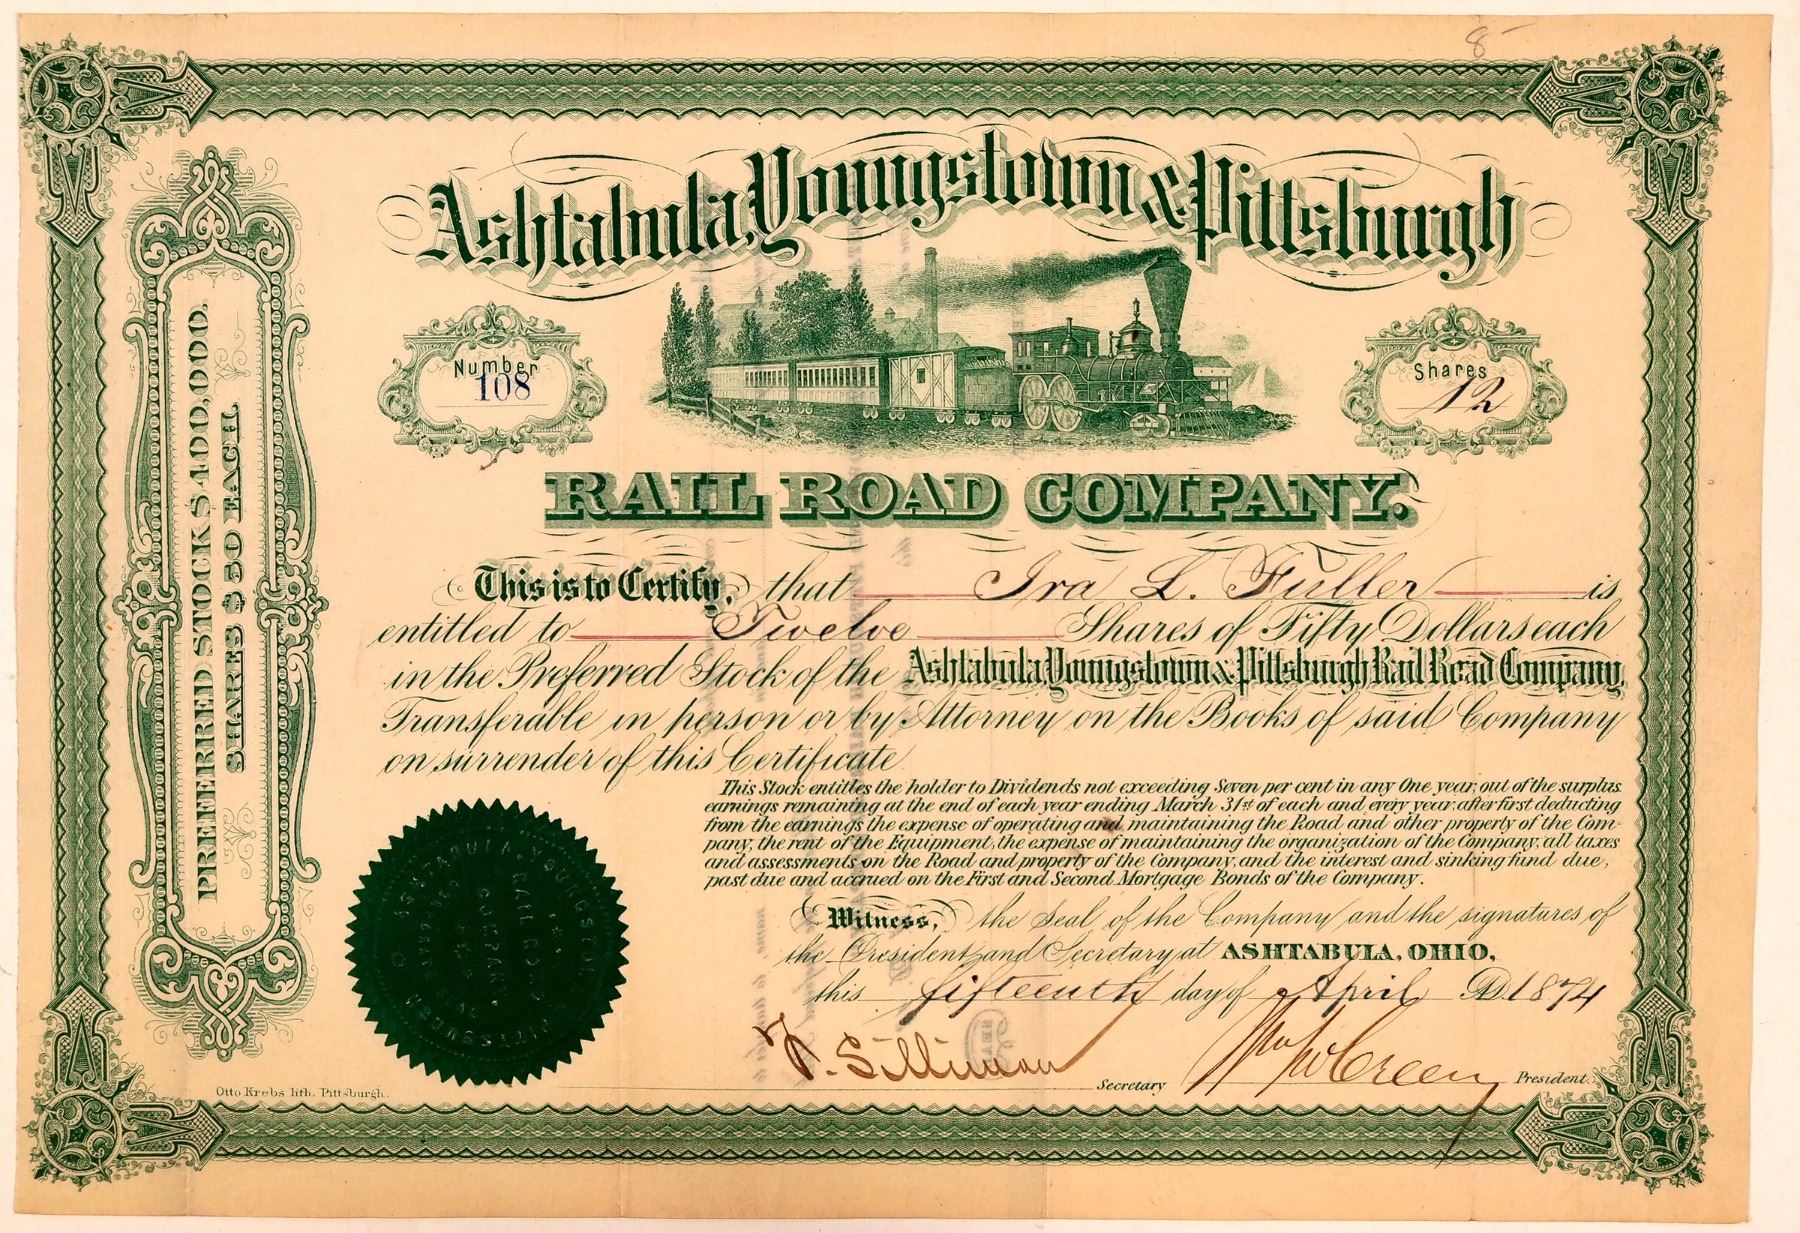 8
Ashtabula, Youngstown & Pittsburgh
Number
108
Shares
12
RAIL ROAD COMPANY.
PREFERRED STOCK $400,000.
SHARES $50 EACH
This is to Certify, that Ira L. Fuller is
entitled to Twelve Shares of Fifty Dollars each
in the Preferred Stock of the Ashtabula, Youngstown & Pittsburgh Rail Road Company,
Transferable in person or by Attorney on the Books of said Company
on surrender of this Certificate
This Stock entitles the holder to Dividends not exceeding Seven per cent in any One year, out of the surplus
earnings remaining at the end of each year ending March 31st of each and every year, after first deducting
from the earnings the expense of operating and maintaining the Road and other property of the Com-
pany, the rent of the Equipment, the expense of maintaining the organization of the Company, all taxes
and assessments on the Road and property of the Company, and the interest and sinking fund due,
past due and accrued on the First and Second Mortgage Bonds of the Company.
Witness, the Seal of the Company and the signatures of
the President and Secretary at ASHTABULA, OHIO,
this fifteenth day of April AD 1874
F. Silliman Secretary
President.
ASHTABULA, YOUNGSTOWN
RAIL RO
COMPANY
PITTSBURGH
Otto Krebs lith. Pittsburgh.